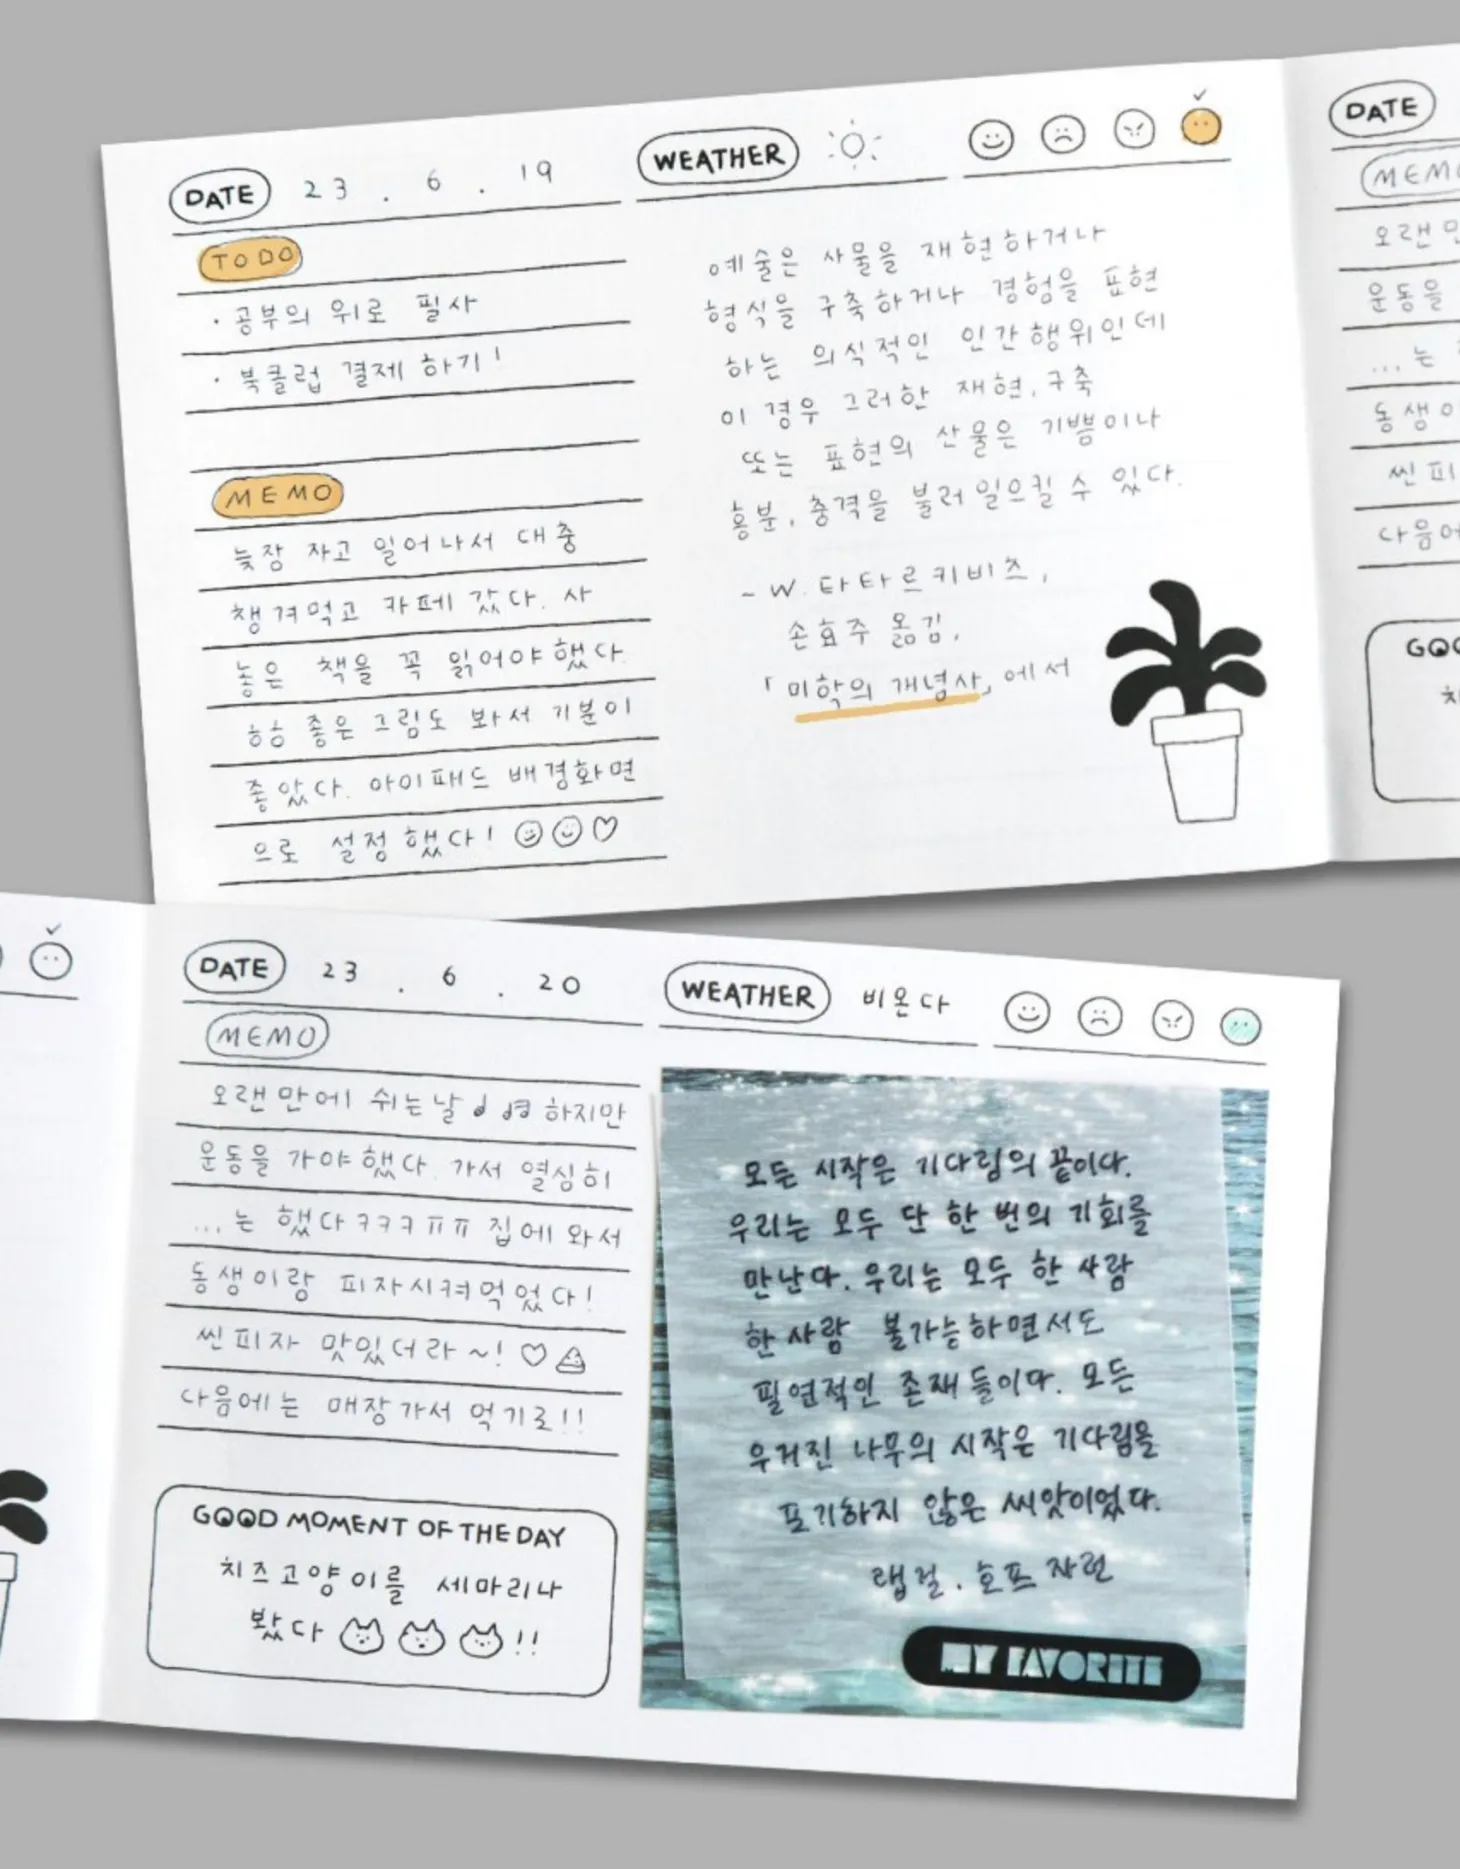 DATE 23 . 6 . 19
WEATHER
TO DO
· 공부의 위로 필사
· 북클럽 결제 하기!
MEMO
늦잠 자고 일어나서 대충
챙겨먹고 카페 갔다. 사
놓은 책을 꼭 읽어야했다.
하하 좋은 그림도 봐서 기분이
좋았다. 아이패드 배경화면
으로 설정했다!
예술은 사물을 재현하거나
형식을 구축하거나 경험을 표현
하는 의식적인 인간행위인데
이 경우 그러한 재현, 구축
또는 표현의 산물은 기쁨이나
흥분, 충격을 불러일으킬 수 있다.
- W. 타타르키비츠,
손효주 옮김,
「미학의 개념사」에서
DATE
MEMO
오랜만
운동을
...는
동생이
씬피
다음에
DATE 23 . 6 . 20
WEATHER 비온다
MEMO
오랜만에 쉬는날 하지만
운동을 가야했다. 가서 열심히
...는 했다ㅋㅋㅋㅠㅠ 집에 와서
동생이랑 피자시켜먹었다!
씬피자 맛있더라~!
다음에는 매장가서 먹기로!!
GOOD MOMENT OF THE DAY
치즈고양이를 세마리나
봤다 !!
모든 시작은 기다림의 끝이다.
우리는 모두 단 한 번의 기회를
만난다. 우리는 모두 한 사람
한 사람 불가능하면서도
필연적인 존재들이다. 모든
우거진 나무의 시작은 기다림을
포기하지 않은 씨앗이었다.
랩걸. 호프 자런
MY FAVORITE